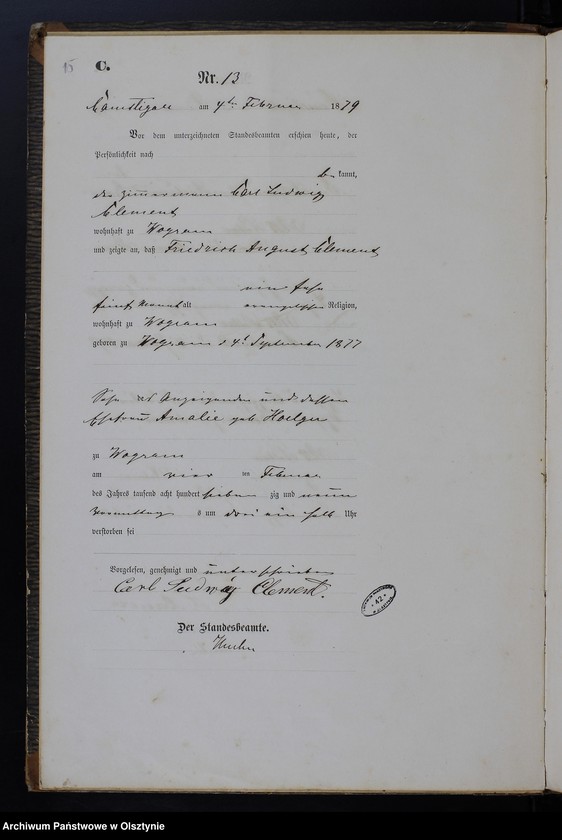 15
C.
Nr. 13
Camstigall am 4ten Februar 1879
Vor dem unterzeichneten Standesbeamten erschien heute, der
Persönlichkeit nach
be kannt,
der Zimmermann Carl Ludwig
Clement
wohnhaft zu Wogram
und zeigte an, daß Friedrich August Clement
ein Jahr
fünf Monat alt evangelischer Religion,
wohnhaft zu Wogram
geboren zu Wogram d 4t September 1877
Sohn des Anzeigenden und dessen
Ehefrau Amalie geb
zu Wogram
am vier ten Februar
des Jahres tausend acht hundert sieben zig und neun
Vormittag s um drei ein halb Uhr
verstorben sei
Vorgelesen, genehmigt und unterschrieben
Carl Ludwig Clement.
Der Standesbeamte.
42
Archiwum Państwowe w Olsztynie